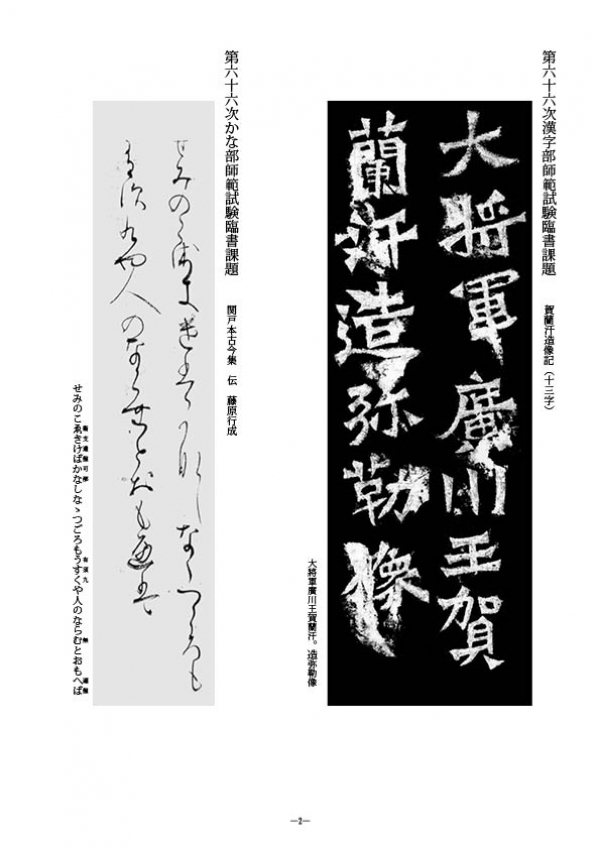 第六十六次漢字部師範試験臨書課題
賀蘭汗造像記（十三字）
大將軍廣川王賀
蘭汗造弥勒像
大將軍廣川王賀蘭汗。造弥勒像
第六十六次かな部師範試験臨書課題
関戸本古今集　伝　藤原行成
せみのこゑきけばかなしなゝつごろもうすくや人のならむとおもへば
―2―